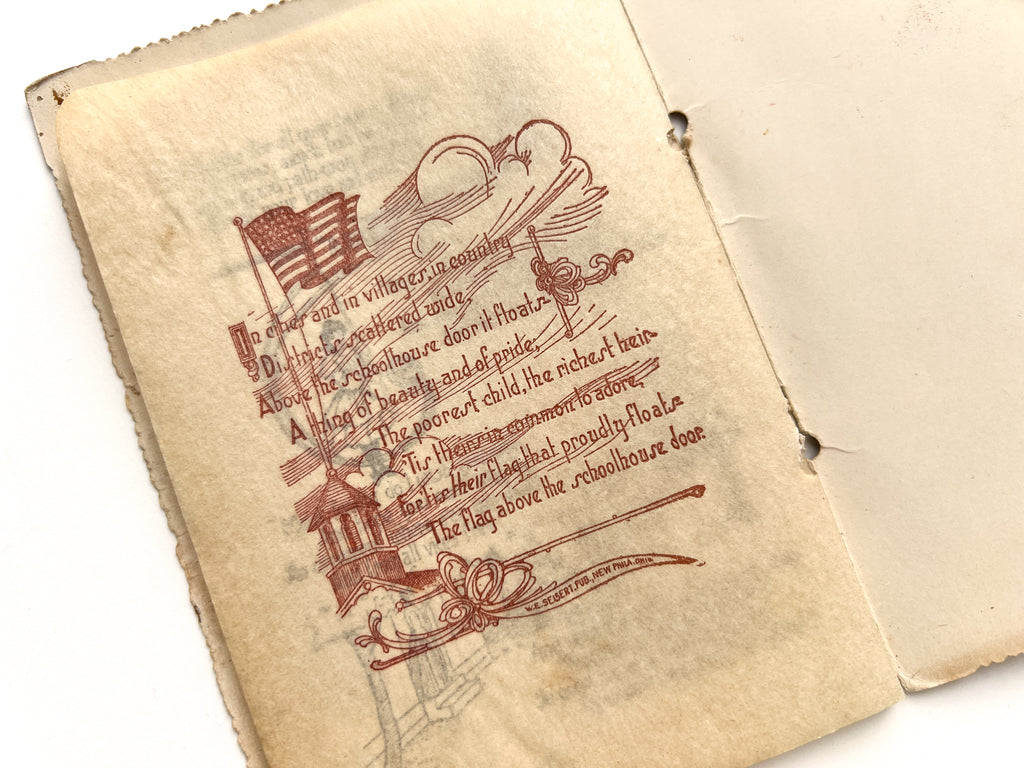 In cities and in villages, in country
Districts scattered wide,
Above the schoolhouse door it floats-
A thing of beauty and of pride;
The poorest child, the richest heir-
'Tis theirs in common to adore,
For 'tis their flag that proudly floats-
The flag above the schoolhouse door.
W.E. SEIBERT, PUB., NEW PHILA. OHIO